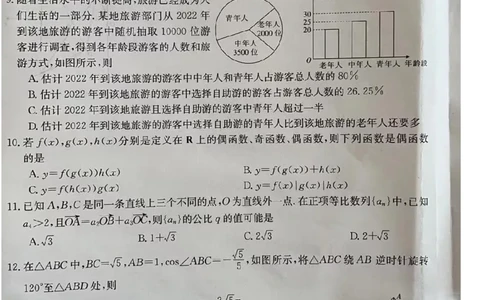 9. 随着生活水平的不断提高,旅游已经成为人
们生活的一部分. 某地旅游部门从 2022 年
到该地旅游的游客中随机抽取 10000 位游
客进行调查,得到各年龄段游客的人数和旅
游方式,如图所示,则
青年人
老年人
2000 位
中年人
3500 位
30
25
20
老年人 中年人 青年人 年龄段
A. 估计 2022 年到该地旅游的游客中中年人和青年人占游客总人数的 80%
B. 估计 2022 年到该地旅游的游客中选择自助游的游客占游客总人数的 26.25%
C. 估计 2022 年到该地旅游且选择自助游的游客中青年人超过一半
D. 估计 2022 年到该地旅游的游客中选择自助游的青年人比到该地旅游的老年人还要多
10. 若 f(x),g(x),h(x)分别是定义在 R 上的偶函数、奇函数、偶函数,则下列函数是偶函数
的是
A. y=f(g(x))h(x)
B. y=f(g(x))+h(x)
C. y=f(h(x))g(x)
D. y=f(x)|g(x)|h(x)
11. 已知 A,B,C 是同一条直线上三个不同的点,O 为直线外一点. 在正项等比数列{aₙ}中,已知
a₄>2,且OA=a₃OB+a₂OC,则{aₙ}的公比 q 的值可能是
A. √3
B. 1+√3
C. 2√3
D. 2+√3
12. 在△ABC 中,BC=√5,AB=1,cos∠ABC=-√5/5,如图所示,将△ABC 绕 AB 逆时针旋转
120°至△ABD 处,则